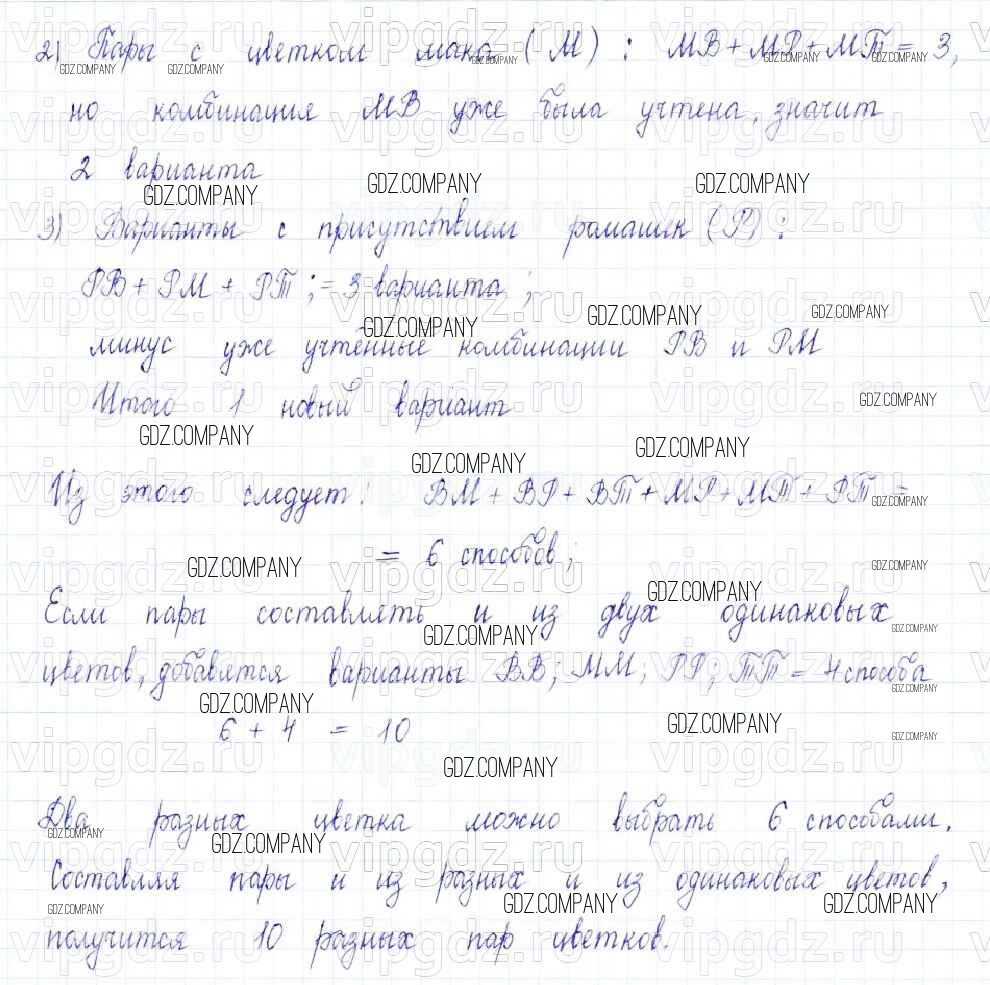 2) Пары с цветком мака (М) : МВ + МР + МТ = 3,
но комбинация МВ уже была учтена, значит
2 варианта
3) Варианты с присутствием ромашек (Р) :
РВ + РМ + РТ ; = 3 варианта ;
минус уже учтённые комбинации РВ и РМ
Итого 1 новый вариант
Из этого следует: ВМ + ВР + ВТ + МР + МТ + РТ =
= 6 способов ;
Если пары составлять и из двух одинаковых
цветов, добавятся варианты ВВ; ММ; РР; ТТ = 4 способа
6 + 4 = 10
Два разных цветка можно выбрать 6 способами.
Составляя пары и из разных и из одинаковых цветов,
получится 10 разных пар цветков.
vipgdz.ru
GDZ.COMPANY